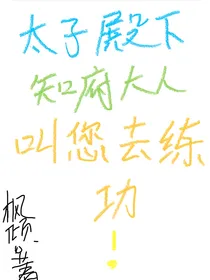 太子殿下
知府大人
叫您去练
功！
枫